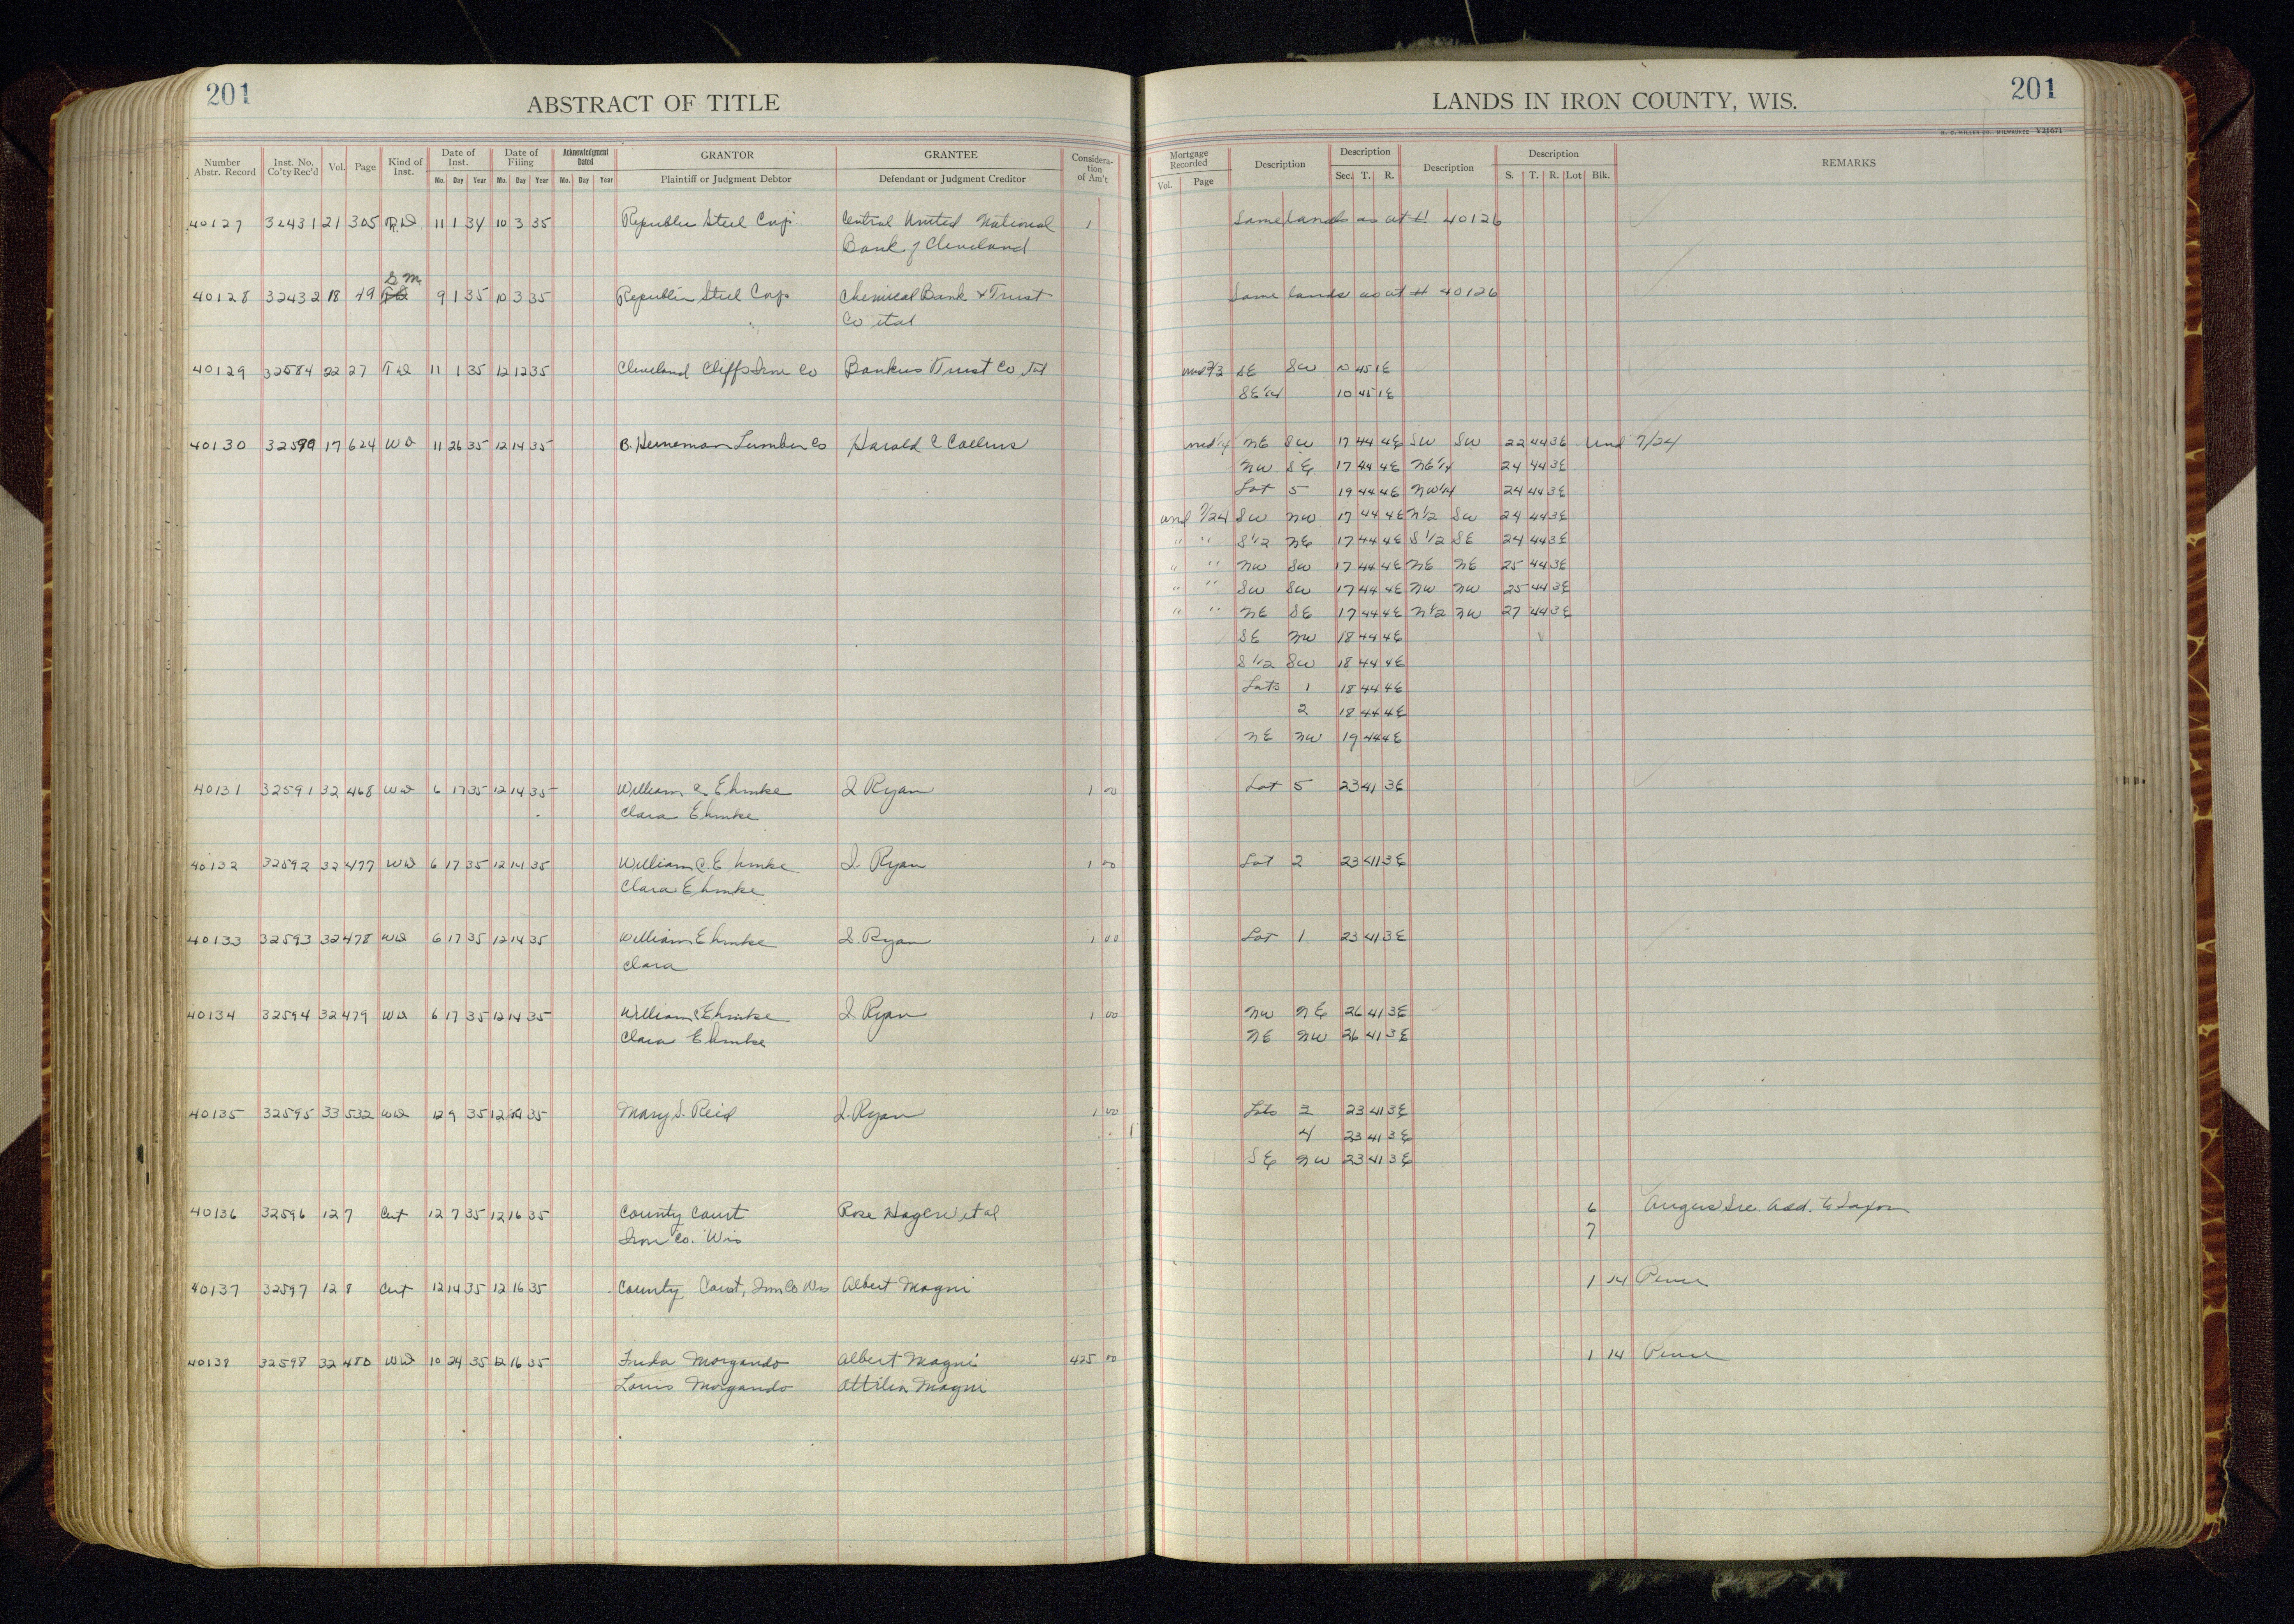 201
ABSTRACT OF TITLE
LANDS IN IRON COUNTY, WIS.
201
H. C. MILLER CO., MILWAUKEE V21671
Number Abstr. Record Inst. No. Co'ty Rec'd Vol. Page Kind of Inst. Date of Inst. Mo. Day Year Date of Filing Mo. Day Year Acknowledgment Dated Mo. Day Year GRANTOR Plaintiff or Judgment Debtor GRANTEE Defendant or Judgment Creditor Considera-tion of Am't
Mortgage Recorded Vol. Page Description Description Sec. T. R. Description Description S. T. R. Lot Blk. REMARKS
40127 32431 21 305 11 1 34 10 3 35 Republic Steel Corp. Central United National 1 Same lands as at # 40126
Bank of Cleveland
S M
40128 32432 18 49 9 1 35 10 3 35 Republic Steel Corp Chemical Bank & Trust Same lands as at # 40126
Co etal
40129 32584 22 27 T D 11 1 35 12 12 35 Cleveland Cliffs Iron Co Bankers Trust Co und 2/3 SE SW 10 45 1E
SE 1/4 10 45 1E
40130 32590 17 624 WD 11 26 35 12 14 35 B. Heineman Lumber Co Harold C Collins und 1/4 NE SW 17 44 4E SW SW 22 44 3E und 7/24
NW SE 17 44 4E NE 1/4 24 44 3E
Lot 5 19 44 4E NW 1/4 24 44 3E
und 7/24 SW NW 17 44 4E N 1/2 SW 24 44 3E
" " S 1/2 NE 17 44 4E S 1/2 SE 24 44 3E
" " NW SW 17 44 4E NE NE 25 44 3E
" " SW SW 17 44 4E NW NW 25 44 3E
" " NE SE 17 44 4E N 1/2 NW 27 44 3E
SE NW 18 44 4E
S 1/2 SW 18 44 4E
Lots 1 18 44 4E
2 18 44 4E
NE NW 19 44 4E
40131 32591 32 468 WD 6 17 35 12 14 35 William C Ehmke I Ryan 1 00 Lot 5 23 41 3E
Clara Ehmke
40132 32592 32 477 WD 6 17 35 12 14 35 William C. Ehmke I. Ryan 1 00 Lot 2 23 41 3E
Clara Ehmke
40133 32593 32 478 WD 6 17 35 12 14 35 William Ehmke I. Ryan 1 00 Lot 1 23 41 3E
Clara
40134 32594 32 479 WD 6 17 35 12 14 35 William C Ehmke I Ryan 1 00 NW NE 26 41 3E
Clara Ehmke NE NW 26 41 3E
40135 32595 33 532 WD 12 9 35 12 14 35 Mary S. Reid I. Ryan 1 00 Lots 3 23 41 3E
4 23 41 3E
SE NW 23 41 3E
40136 32596 12 7 Cert 12 7 35 12 16 35 County Court Rose Hagen et al 6 Angus Sec Add. to Saxon
Iron Co. Wis 7
40137 32597 12 8 Cert 12 14 35 12 16 35 County Court, Iron Co Wis Albert Magni 1 14 Pence
40138 32598 32 480 WD 10 24 35 12 16 35 Morgando Albert Magni 425 00 1 14 Pence
Louis Morgando Attilia Magni